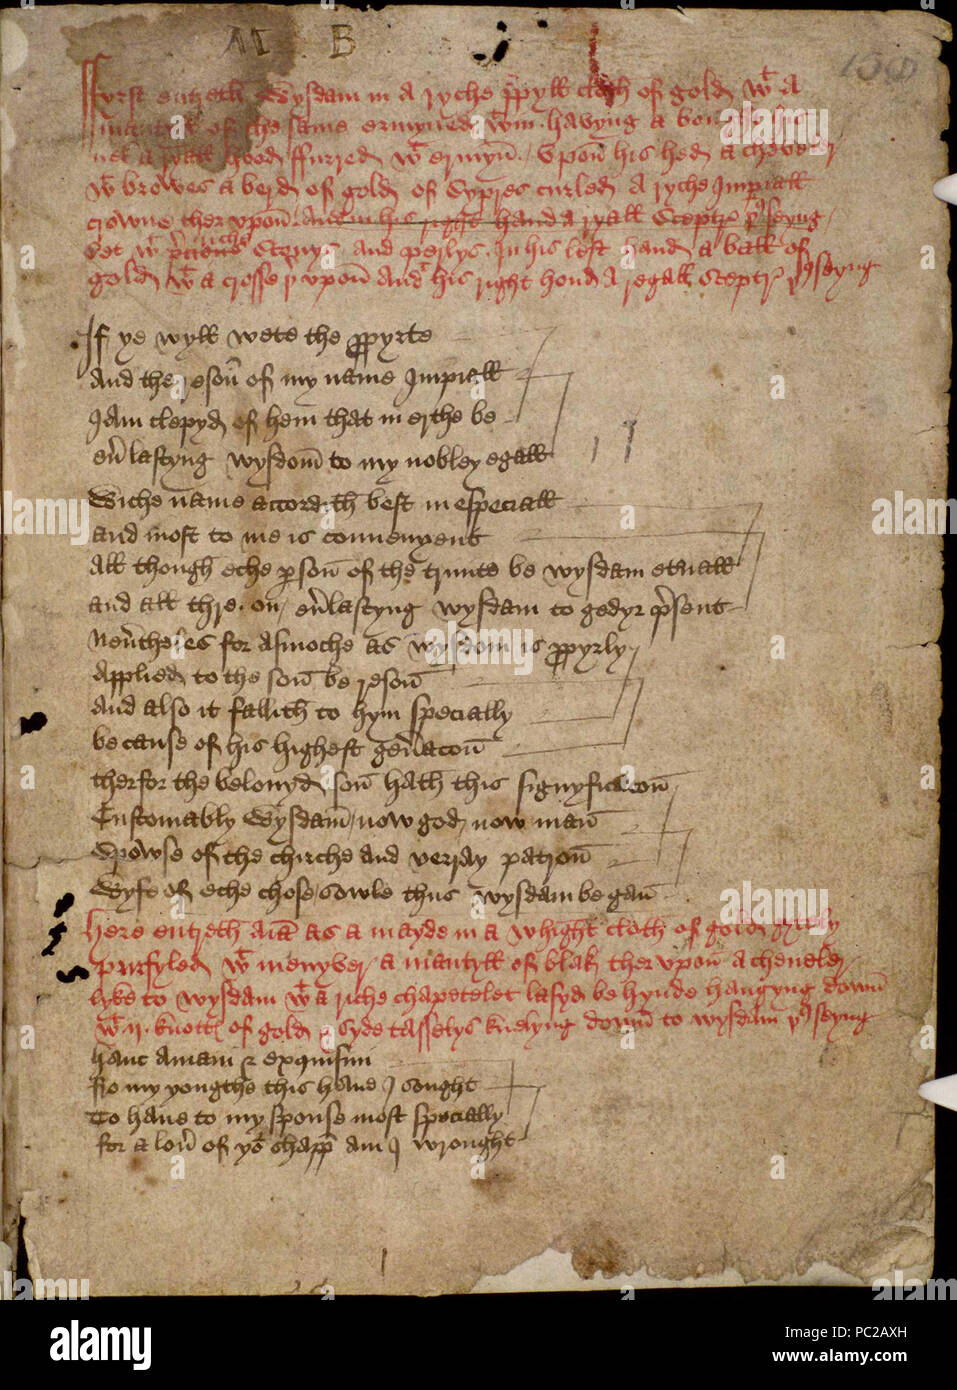 M B
150
ffyrst entreth Wysdam in a ryche ppyll cloth of gold wt a
mantyll of the same ermyned wtin havyng a bowt his
nek a ryall hood ffurred wt ermyn. Vpon his hed a cheveler
wt browes a berd of gold of Sypres curled A ryche Imperiall
crowne ther vpon And in his right hand a ryall Sceptr seyng
Set wt precious riche Stonys and perlys. In his left hand a ball of
gold wt a crosse ther vpon And his right hond A regall Sceptr seyng
If ye wyll wete the ppyrte
And the reson of my name Imperiall
I am clepyd of hem that in erthe be
eu lastyng wysdom to my nobley egall
Wiche name accordith best in especiall
and most to me is conuenyent
All though eche pson of the trinite be wysdam etnall
and all thre. on, eulastyng wysdam to gedyr psent
Neutheles for asmoche as wysdom is ppyrly
Applied to the son be reson
And also it fallith to hym specially
be cause of his highest genacon
therfor the belouyd son hath this signyficacon
Custommably Wysdam, now god now man
Spowse of the chirche and verray patron
Wyfe of eche chose, sowle thus wysdam be gan
Here entreth Aia as a mayde in a whight cloth of gold gytely
purfyled wt menyver a mantyll of blak ther vpon a cheueler
lyke to wysdam wt a riche chapetelet lasyd be hynde hangyng down
wt ii. knott of gold & syde tasselys knelyng down to wysdam seyng
hanc amaui & exquisiui
ffro my yongthe this haue I sought
To haue to my spouse most specially
for a lou of yor shapp am I wrought
alamy
alamy
PC2AXH
www.alamy.com